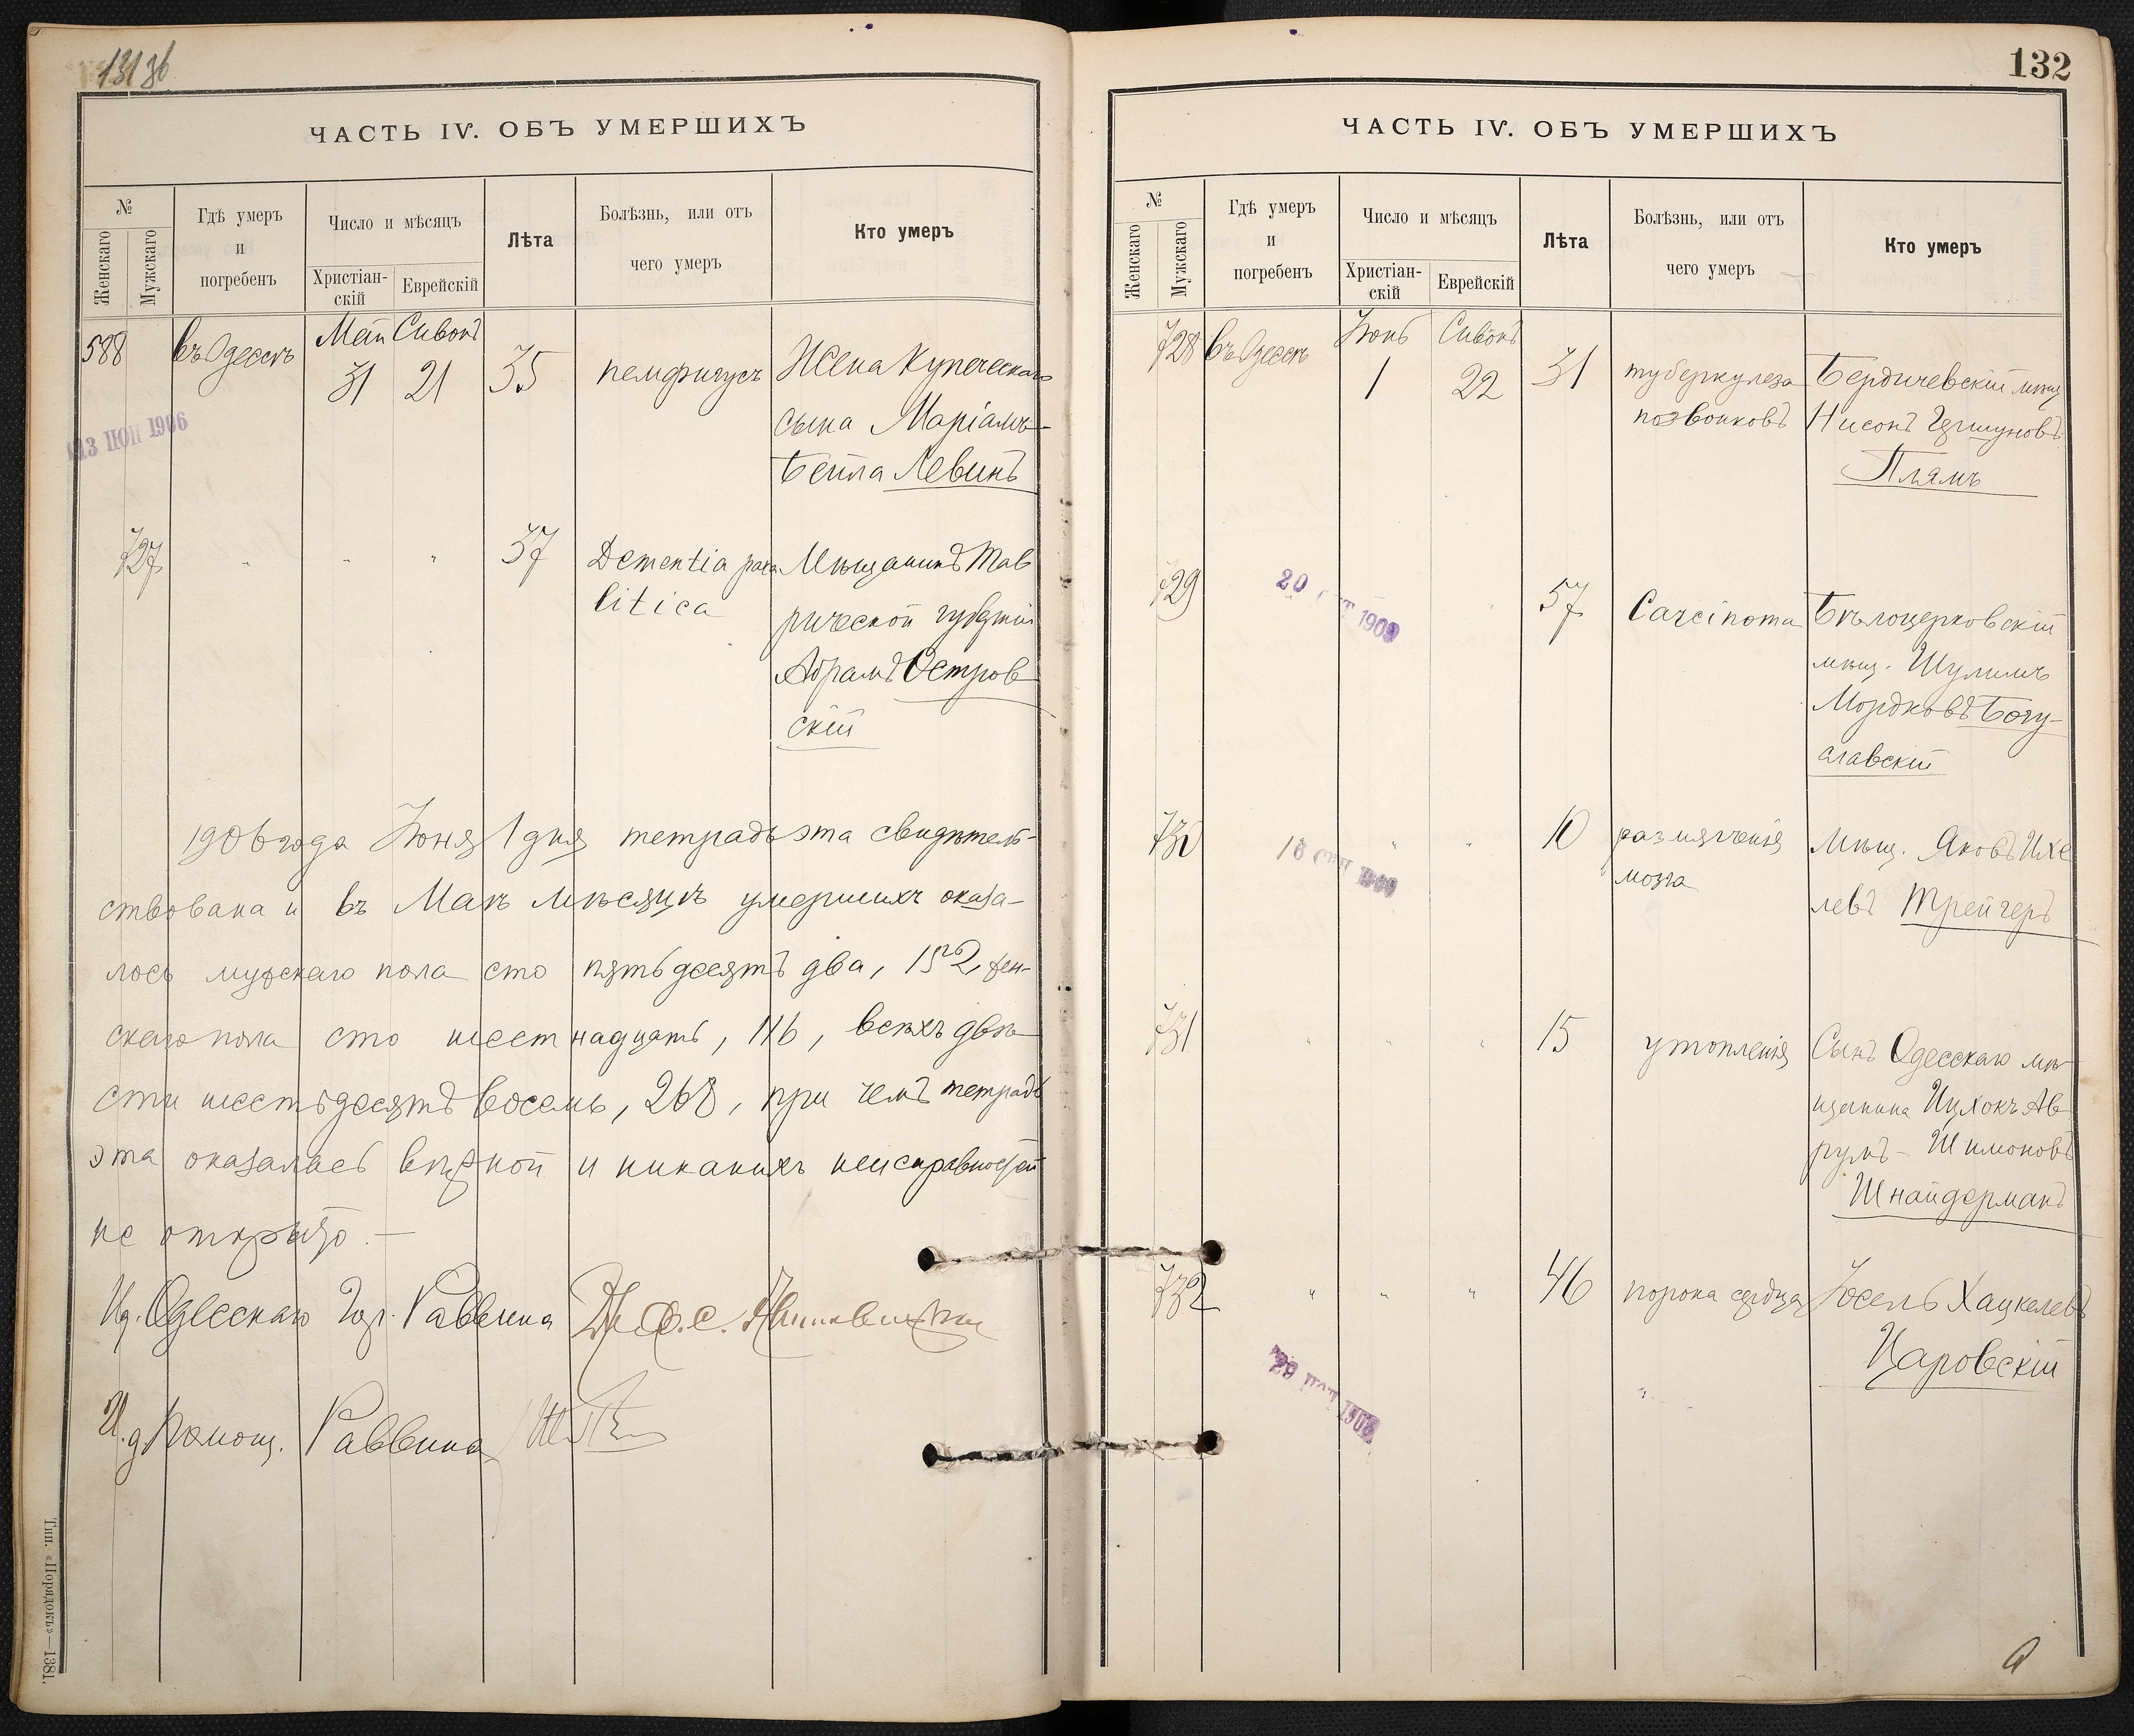 ЧАСТЬ IV. ОБЪ УМЕРШИХЪ
№
Женскаго
Мужскаго
Гдѣ умеръ
и
погребенъ
Число и мѣсяцъ
Христіан-
скій
Еврейскій
Лѣта
Болѣзнь, или отъ
чего умеръ
Кто умеръ
588 въ Одессѣ Май 31 Сивонъ 21 35 пемфигусъ Жена Купеческаго
сына Маріамъ-
Бейла Левинъ
13 ІЮЛ 1906
727 " " " 37 Dementia para Мѣщанинъ Тав
litica рической губерніи
Абрамъ Остров
скій
1906 года Іюня 1 дня тетрадь эта свидѣтель-
ствована и въ Маѣ мѣсяцѣ умершихъ оказа-
лось мужскаго пола сто пятьдесятъ два, 152, жен-
скаго пола сто шестнадцать, 116, всѣхъ двѣ
сти шестьдесятъ восемь, 268, при чемъ тетрадь
эта оказалась вѣрной и никакихъ неисправностей
не открыто.—
Ид. Одесскаго Гор. Раввина
И.д. Помощ. Раввина
Тип. «Порядокъ»—1381.
132
ЧАСТЬ IV. ОБЪ УМЕРШИХЪ
№
Женскаго
Мужскаго
Гдѣ умеръ
и
погребенъ
Число и мѣсяцъ
Христіан-
скій
Еврейскій
Лѣта
Болѣзнь, или отъ
чего умеръ
Кто умеръ
728 въ Одессѣ Іюнь 1 Сивонъ 22 31 туберкулеза Бердичевскій мѣщ
позвонковъ Нисонъ
Плямъ
729 57 Carcinoma Бѣлоцерковскій
мѣщ. Шулимъ
Мордковъ Богу-
славскій
20 1909
730 " " 10 размягченія Мѣщ. Яковъ Ихе
мозга левъ Трейгеръ
731 " " " 15 утопленія Сынъ Одесскаго мѣ
щанина Ицхокъ Ав
румъ-Шимоновъ
Шнайдерманъ
732 " " " 46 порока сердца Іосель Хацкелевъ
Царовскій